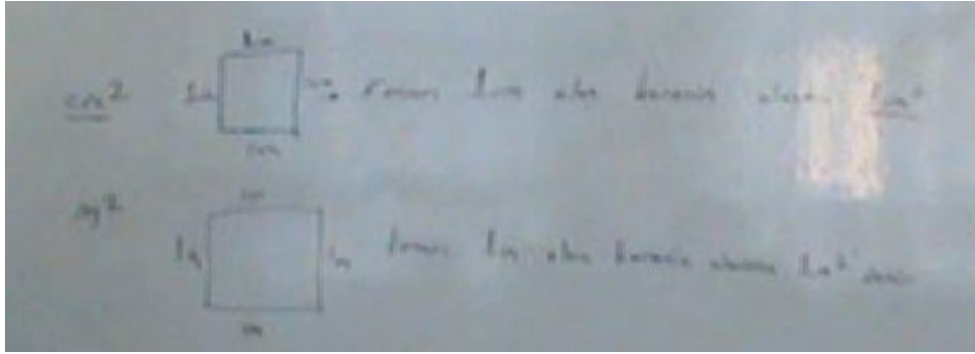 1cm
cm² 1cm 1cm Kenarı 1cm olan karenin alanına 1cm²
1cm
1m
m² 1m 1m kenarı 1m olan karenin alanına 1m² denir
1m